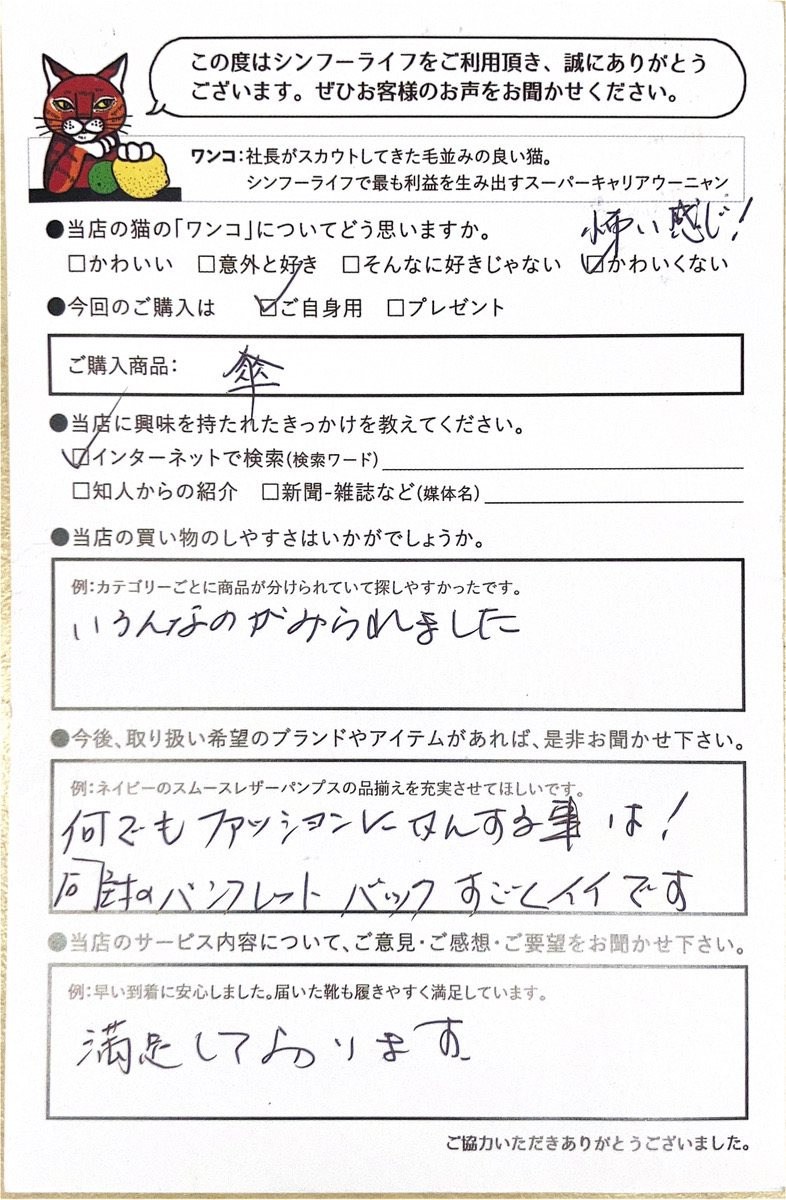 この度はシンフーライフをご利用頂き、誠にありがとう
ございます。ぜひお客様のお声をお聞かせください。
ワンコ：社長がスカウトしてきた毛並みの良い猫。
シンフーライフで最も利益を生み出すスーパーキャリアウーニャン
●当店の猫の「ワンコ」についてどう思いますか。
怖い感じ！
□かわいい □意外と好き □そんなに好きじゃない ☑かわいくない
●今回のご購入は ☑ご自身用 □プレゼント
ご購入商品： 傘
●当店に興味を持たれたきっかけを教えてください。
☑インターネットで検索(検索ワード)
□知人からの紹介 □新聞-雑誌など(媒体名)
●当店の買い物のしやすさはいかがでしょうか。
例：カテゴリーごとに商品が分けられていて探しやすかったです。
いろんなのがみられました
●今後、取り扱い希望のブランドやアイテムがあれば、是非お聞かせ下さい。
例：ネイビーのスムースレザーパンプスの品揃えを充実させてほしいです。
何でもファッションにかんする事は！
同封のパンフレット バックすごくイイです
●当店のサービス内容について、ご意見・ご感想・ご要望をお聞かせ下さい。
例：早い到着に安心しました。届いた靴も履きやすく満足しています。
満足しております
ご協力いただきありがとうございました。